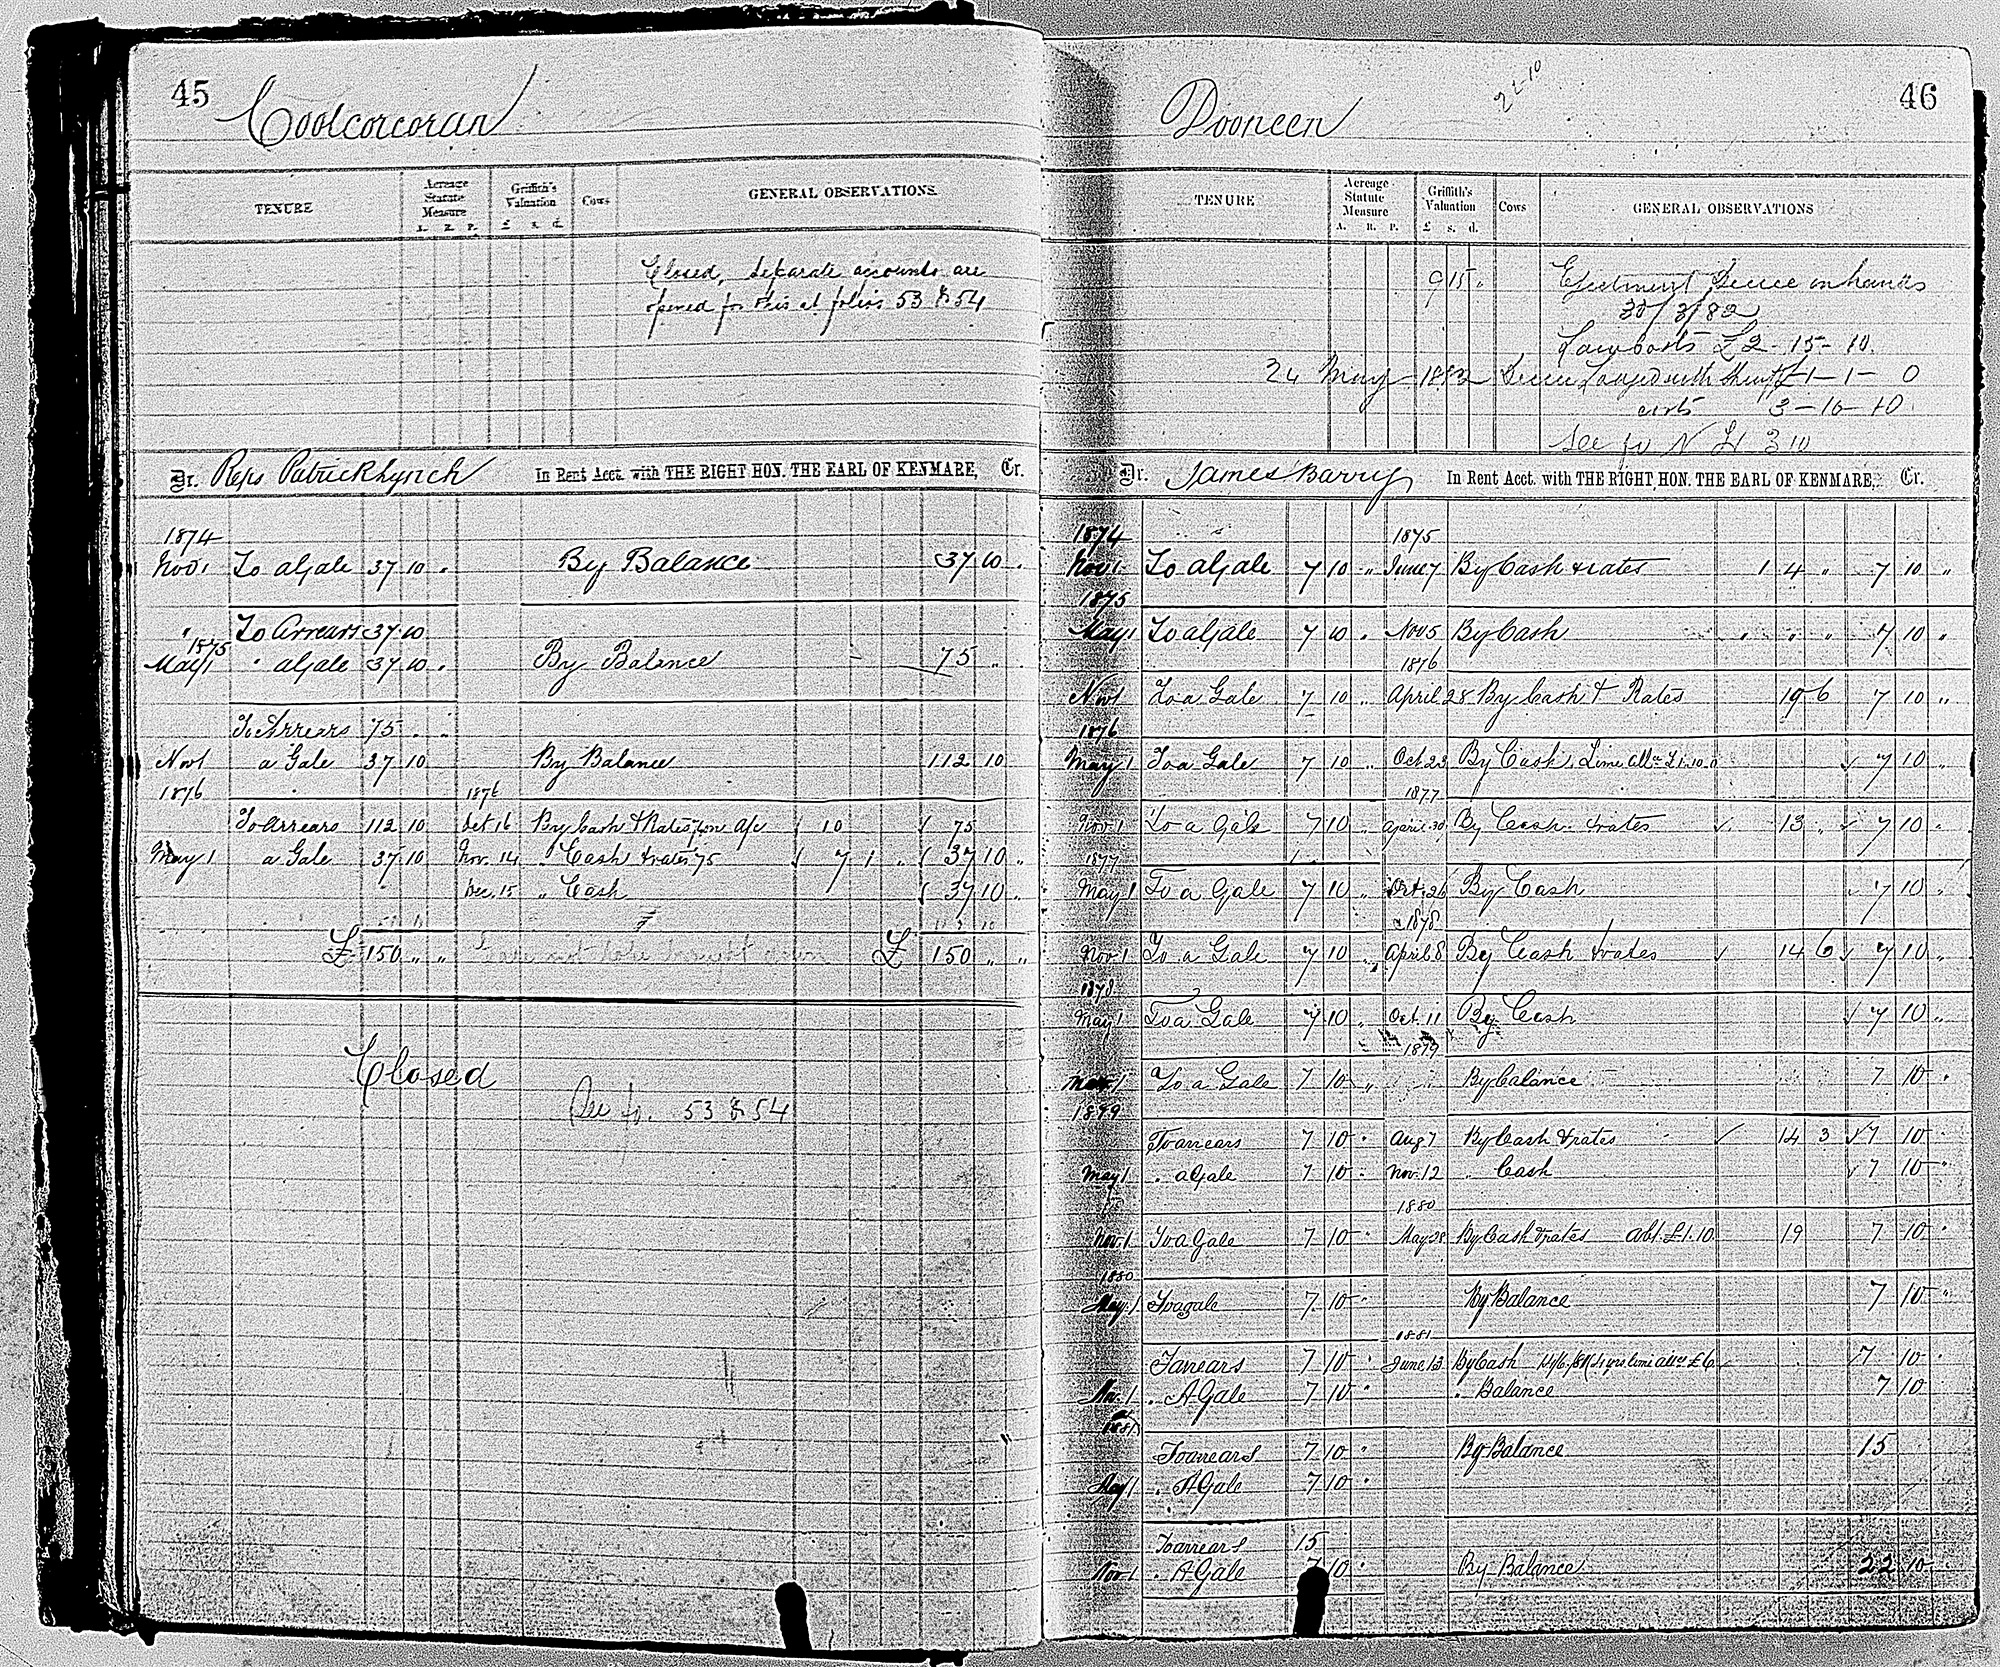 45
Coolcorcoran
TENURE
Acreage Statute Measure
A. R. P.
Griffith's Valuation
£ s. d.
Cows
GENERAL OBSERVATIONS.
Closed, Separate accounts are
opened for this at folios 53 & 54
Dr. Reps Patrick Lynch In Rent Acct. with THE RIGHT HON. THE EARL OF KENMARE, Cr.
1874
Nov 1 To a Gale 37 10 " By Balance 37 10 "
" To Arrears 37 10
1875
May 1 " a Gale 37 10 " By Balance 75 " "
To Arrears 75 " "
Nov 1 a Gale 37 10 By Balance 112 10
1876 1876
To Arrears 112 10 Oct 16 By Cash & Rates 10 75
May 1 a Gale 37 10 Nov. 14 " Cash & rates 75 7 1 " 37 10 "
Dec. 15 " Cash 37 10 "
£ 150 " " £ 150 " "
Closed
See fo. 53 & 54
46
Dooneen
22-10
TENURE
Acreage Statute Measure
A. R. P.
Griffith's Valuation
£ s. d.
Cows
GENERAL OBSERVATIONS
9 15 " Ejectment Decree in hands
30/3/82
Law Costs £2-15-10.
24 May 1882 Decree Lodged with Sheriff £1-1-0
costs 3-16-10.
See fo N
Dr. James Barry In Rent Acct. with THE RIGHT HON. THE EARL OF KENMARE, Cr.
1874 1875
Nov 1. To a Gale 7 10 " June 7 By Cash & rates 1 4 " 7 10 "
1875
May 1 To a Gale 7 10 " Nov 5 By Cash " " " 7 10 "
1876
Nov 1 To a Gale 7 10 " April 28 By Cash & Rates 19 6 7 10 "
1876
May 1 To a Gale 7 10 " Oct 23 By Cash, Lime allce £1.10.0 7 10 "
1877
Nov. 1 To a Gale 7 10 " April 30 By Cash & rates 13 " 7 10 "
1877
May 1 To a Gale 7 10 " Oct. 26 By Cash 7 10 "
1878
Nov. 1 To a Gale 7 10 " April 8 By Cash & rates 14 6 7 10 "
1878
May 1. To a Gale 7 10 " Oct. 11 By Cash 7 10 "
1879
Nov. 1 To a Gale 7 10 " By balance 7 10 "
1879
To arrears 7 10 " Aug 7 By Cash & rates 14 3 7 10 "
May 1 " a Gale 7 10 " Nov. 12 " Cash 7 10 "
1880
Nov. 1 To a Gale 7 10 " May 28 By Cash & rates abt. £1.10. 19 7 10 "
1880
May 1 To a gale 7 10 " By Balance 7 10 "
1881
To arrears 7 10 " June 13 By Cash lime allce £6 7 10 "
Nov 1 " A Gale 7 10 " " Balance 7 10
1881
To arrears 7 10 " By Balance 15
May 1 " A Gale 7 10 "
To arrears 15
Nov. 1 " A Gale 7 10 " By Balance 22 10